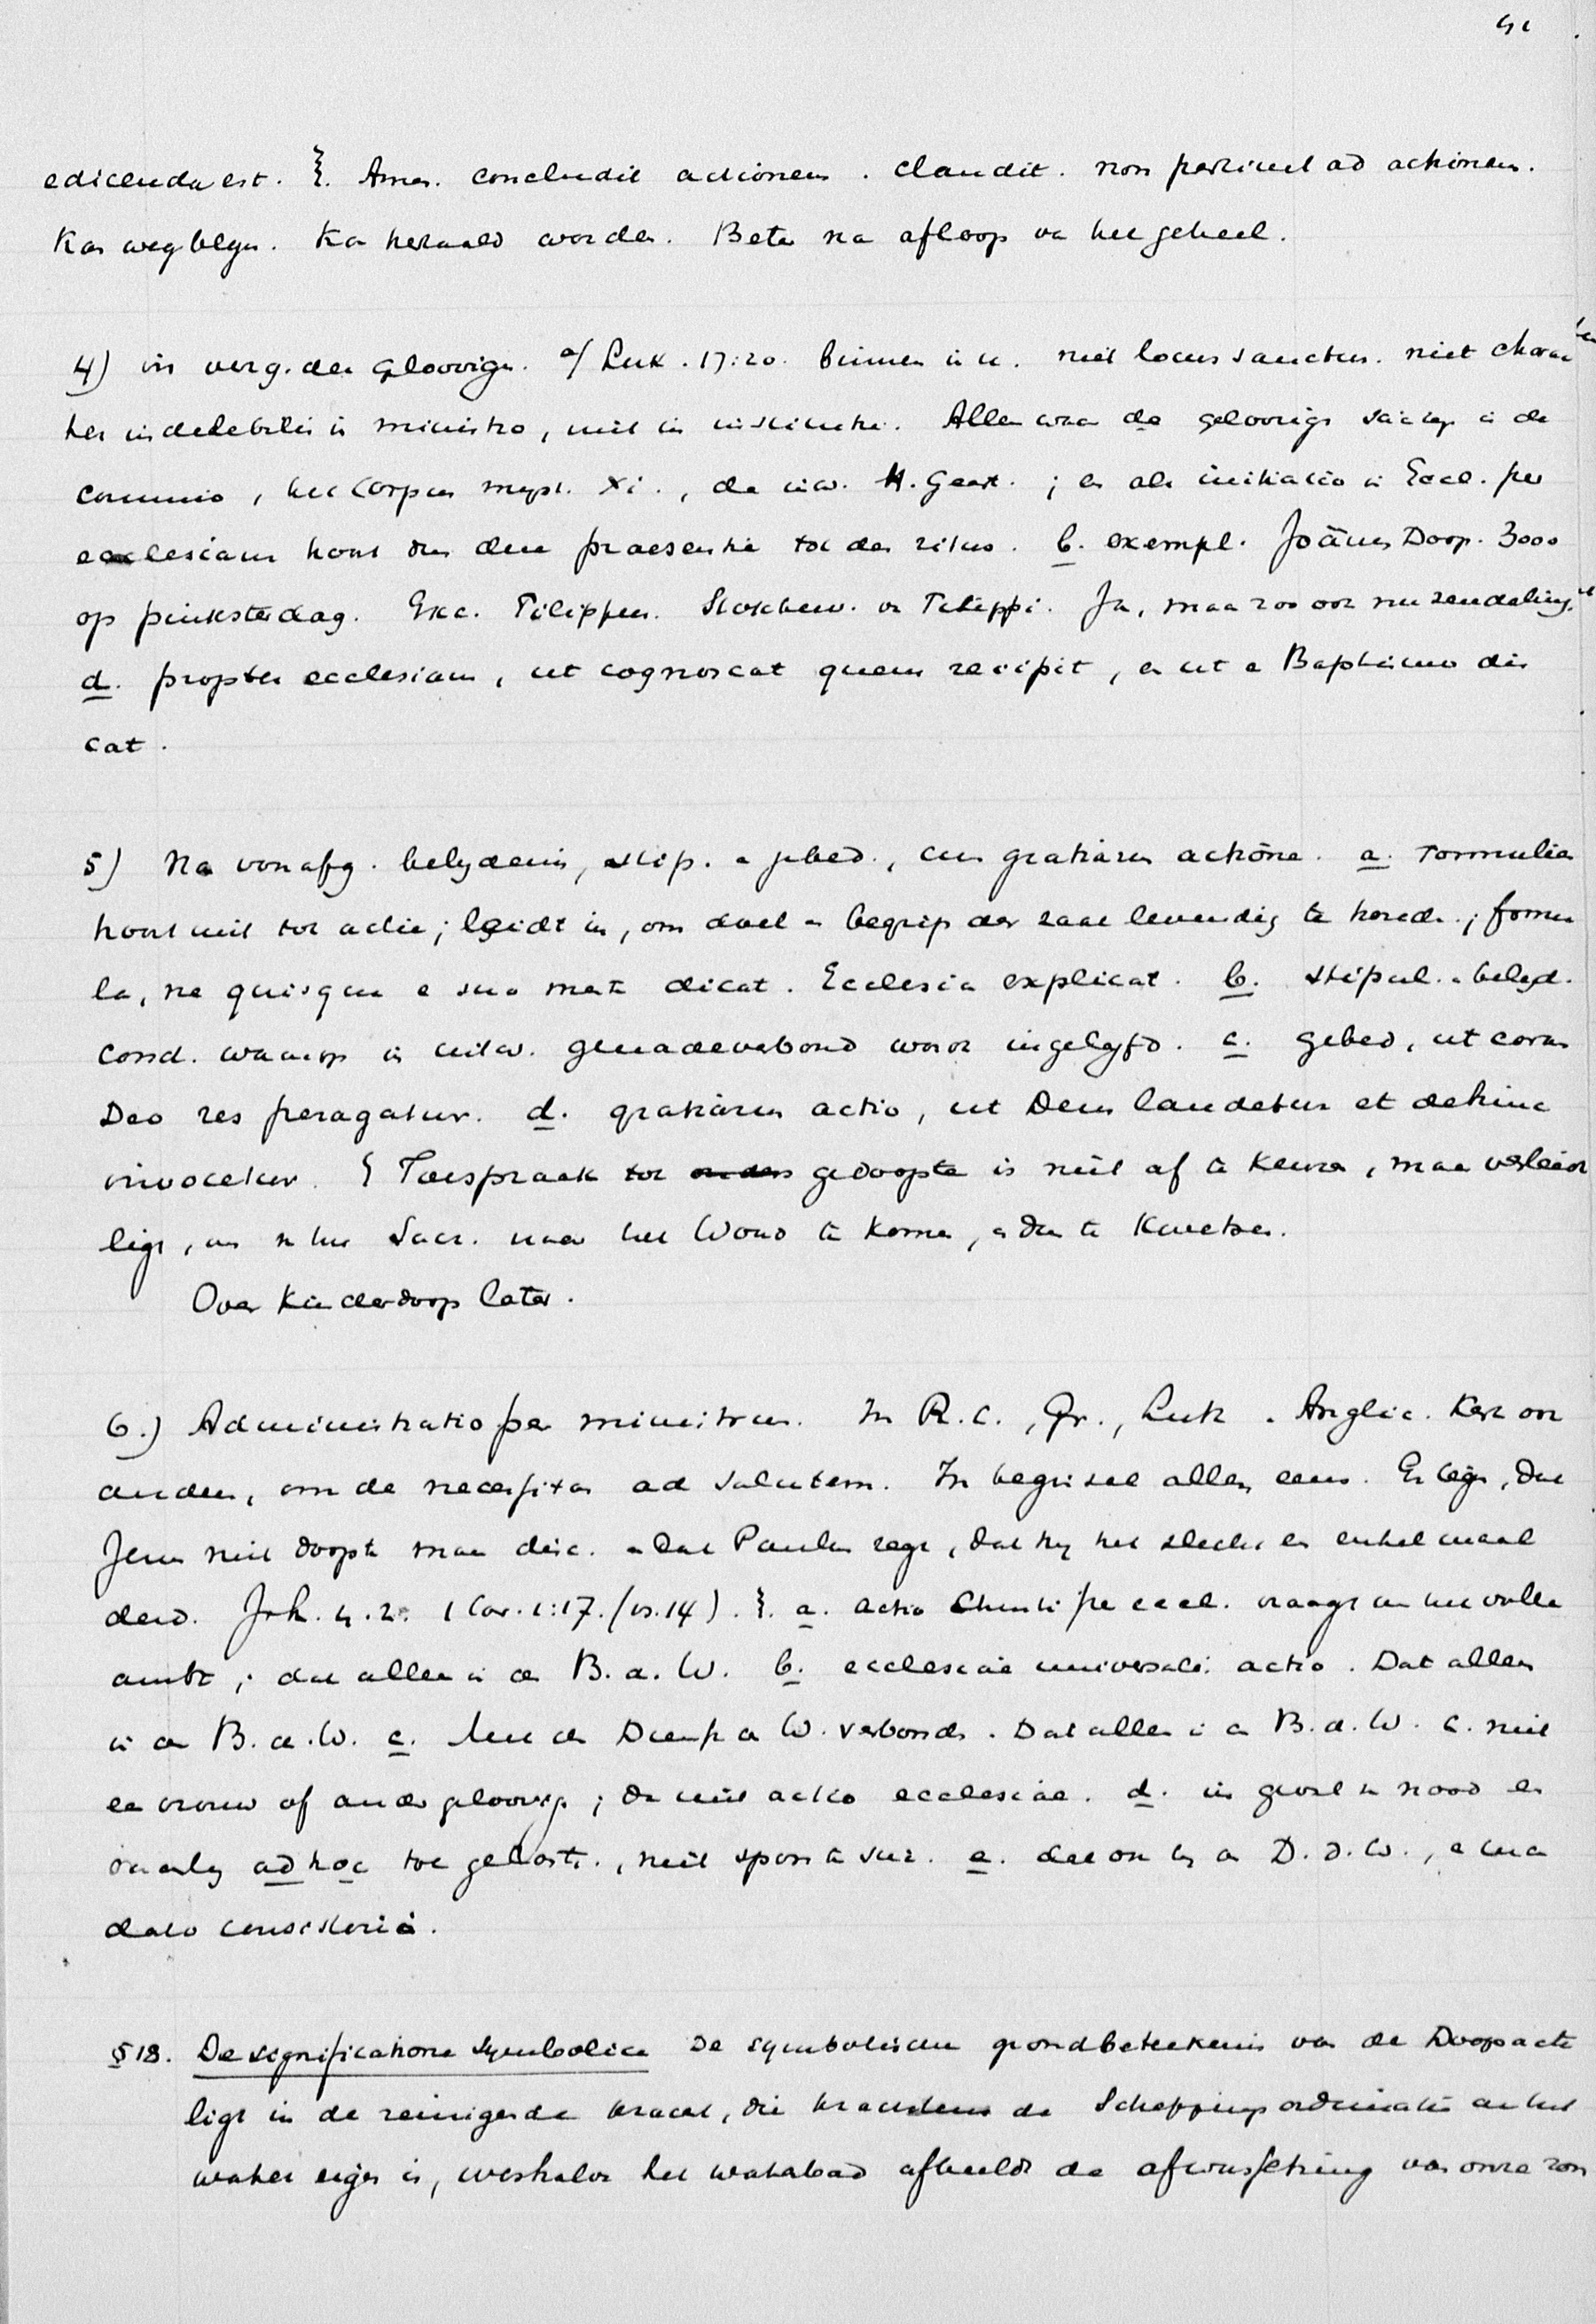 41
edicenda est. §. Amen. concludit actionem. claudit. non pertinet ad actionem.
Kan wegblyven. Kan herhaald worden. Beter na afloop va het geheel.
4) in verg. der gloovigen. a/ Luk. 17:20. binnen in u. niet locus sanctus. niet charac
ter indelebilis in ministro, niet in instituto. Alleen waar de geloovigen in de
communio, het corpus myst. Xi., de inw. H. Geest. ; en als initiatio in Eccl. per
ecclesiam hoort dus deze praesentie tot den ritus. b. exempl. Joānes Doop. 3000
op pinksterdag. Exc. Filippus. Stokbew. in Filippi. Ja, maar zoo ook nu zendeling.
d. propter ecclesiam, ut cognoscat quem recipit, en ut e Baptismo dis
cat.
5) Na voorafg. belydenis, stip. en gebed., cum gratiarum actione. a. Formulier
hoort niet tot actie; leidt in, om doel en begrip der zaak levendig te houden; formu
la, ne quisque e sua mente dicat. Ecclesia explicat. b. stipul. en belyd.
cond. waarop in uitw. genadeverbond wordt ingelyfd. c. gebed, ut coram
Deo res peragatur. d. gratiarum actio, ut Deus laudetur et dehinc
invocetur. § Toespraak tot gedoopte is niet af te keuren, maar verleidt
ligt, om v. het Sacr. naar het Woord te komen, en dus te kwetsen.
Over kinderdoop later.
6.) Administratio per ministrum. In R.C., Gr., Luth. en Anglic. Kerk ook
anderen, om de necessitas ad salutem. In beginsel allen eens. Er ligt, dat
Jezus niet doopte maar disc. en dat Paulus zegt, dat hy het slechts en enkel maal
deed. Joh. 4.2. 1 Cor. 1:17. (vs.14). §. a. actio Christi per eccl. vraagt om het volle
ambt; dat alleen in de B. d. W. b. ecclesiae universalis actio. Dat alleen
in de B. d. W. c. Met de Dienst d. W. verbonden. Dat alleen in de B. d. W. c. niet
een vrouw of ander gloovige; dan niet actio ecclesiae. d. in geval v nood en
ouderling ad hoc toe gelast., niet sponte sua. e. dat ook by de D. d. W., e man
dato consistorii.
§ 18. De significatione symbolica De symbolische grondbeteekenis van de Doopacte
ligt in de reinigende kracht, die krachtens de Scheppingsordinantie aan het
water eigen is, weshalve het waterbad afbeeldt de afwassching van onze zon